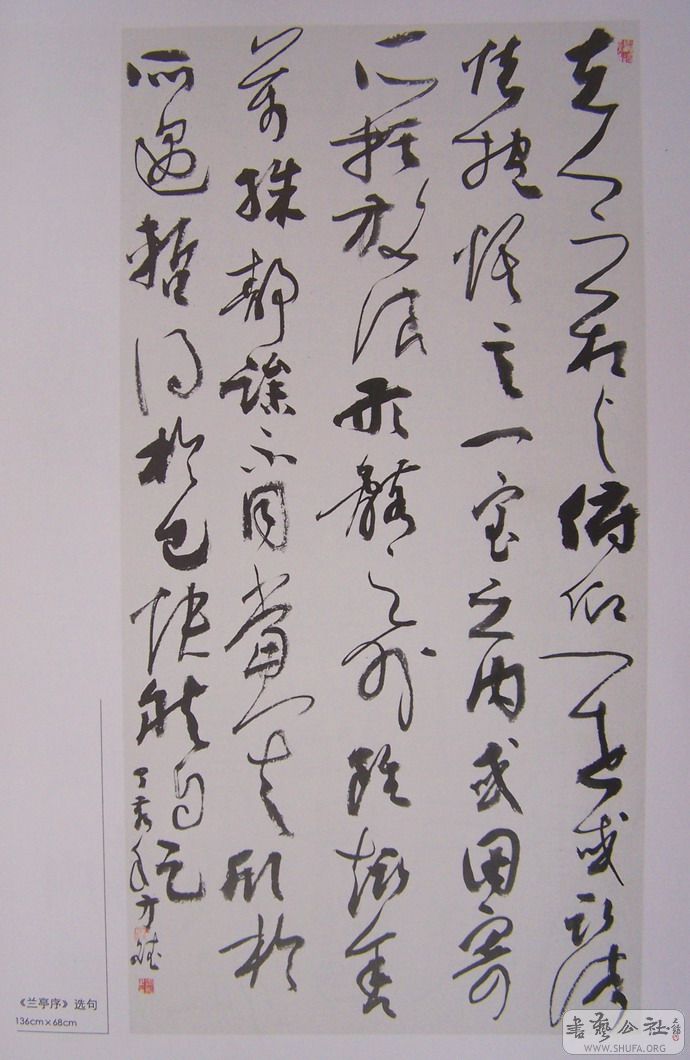 夫人之相与俯仰一世或取諸
懷抱悟言一室之內或因寄
所託放浪形骸之外雖趣舍
萬殊靜躁不同當其欣於
所遇暫得於己快然自足
丁亥年
《兰亭序》选句
136cm×68cm
書藝公社
WWW.SHUFA.ORG